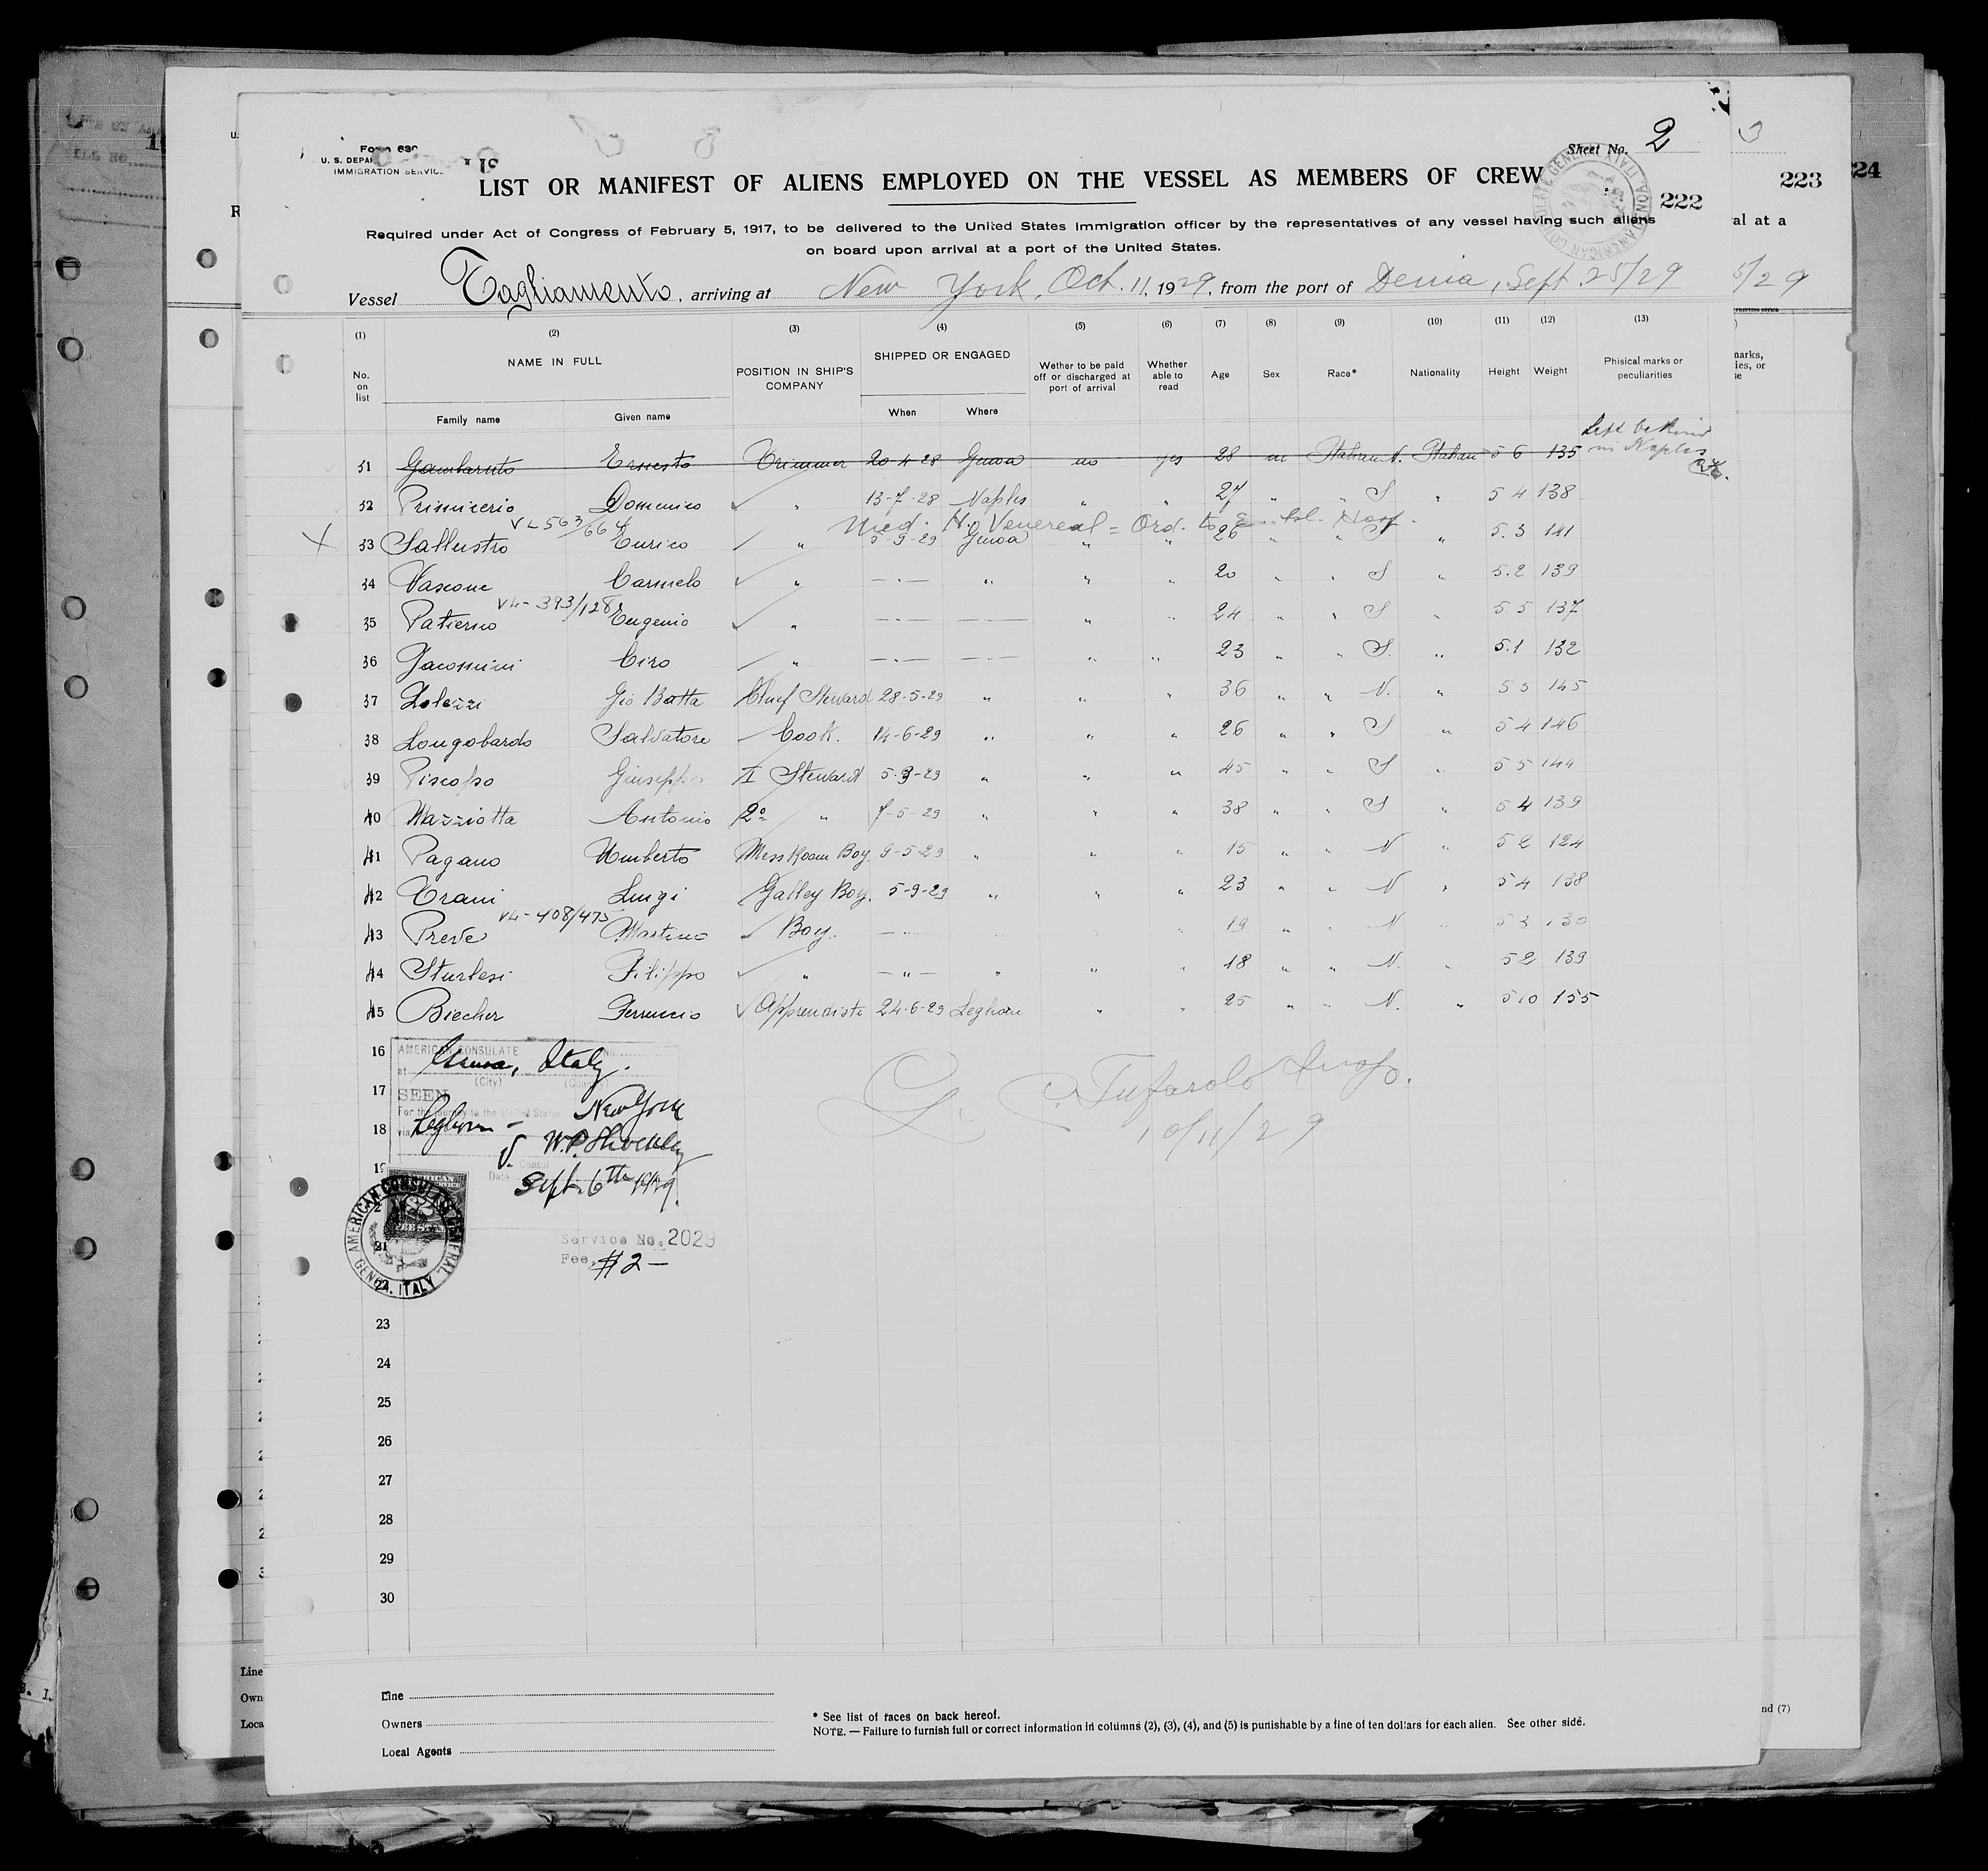 Form 630
U. S. DEPAR
IMMIGRATION SERVICE
LIS
Sheet No. 2
3
LIST OR MANIFEST OF ALIENS EMPLOYED ON THE VESSEL AS MEMBERS OF CREW
222
223
224
AMERICAN CONSULATE GENERAL GENOA, ITALY
Required under Act of Congress of February 5, 1917, to be delivered to the United States Immigration officer by the representatives of any vessel having such aliens
val at a
on board upon arrival at a port of the United States.
Vessel Tagliamento, arriving at New York, Oct. 11, 1929, from the port of Denia, Sept. 25/29
5/29
(1) (2) (3) (4) (5) (6) (7) (8) (9) (10) (11) (12) (13)
No. on list
NAME IN FULL
Family name
Given name
POSITION IN SHIP'S COMPANY
SHIPPED OR ENGAGED
When
Where
Wether to be paid off or discharged at port of arrival
Whether able to read
Age
Sex
Race*
Nationality
Height
Weight
Phisical marks or peculiarities
Left behind
in Naples
31 Gambaruto Ernesto Trimmer 20-4-28 Genoa no yes 28 m Italian N. Italian 5 6 135
32 Primicerio Domenico ✓ " 13-7-28 Naples " " 27 " " S " 5 4 138
VL 563/664
Med. Ho Venereal = Ord. to Hosp.
X 33 Sallustro Enrico " 5-9-29 Genoa " " 26 " " S " 5.3 141
34 Vascone Carmelo ✓ " — " — " " " 20 " " S " 5.2 139
VL-393/128
35 Patierno Eugenio ✓ " — — " " 24 " " S " 5.5 137
36 Jacomini Ciro " — — " " 23 " " S. " 5.1 132
37 Lolezzi Gio Batta Chief Steward 28-5-29 " " " 36 " " N. " 5 5 145
38 Longobardo Salvatore Cook. 14-6-29 " " " 26 " " S " 5 4 146
39 Piscopo Giuseppe II Steward 5-9-29 " " " 45 " " S " 5 5 144
40 Mazziotta Antonio 2° " 7-5-29 " " " 38 " " S " 5 4 139
41 Pagano Umberto Mess Room Boy 9-5-29 " " " 15 " " N " 5 2 124
42 Trani Luigi Galley Boy. 5-9-29 " " " 23 " " N " 5 4 138
VL-408/475
43 Preve Martino ✓ Boy. — " " " 19 " " N " 5 3 130
44 Sturlesi Filippo ✓ " — " — " " " 18 " " N. " 5 2 139
45 Biecher Ferruccio ✓ Apprendista 24-6-29 Leghorn " " 25 " " N. " 5 10 155
16 AMERICAN CONSULATE No.
at Genoa, Italy.
(City) (Country)
17 SEEN
For the journey to the United States New York
18 via Leghorn -
V. W.P. Shockley
Consul
19 Date Sept. 6th 1929.
Tufarolo Insp.
10/11/29
AMERICAN CONSULATE GENERAL GENOA, ITALY
21
Service No. 2029
Fee, $2 —
23
24
25
26
27
28
29
30
Line
Owners
Local Agents
* See list of races on back hereof.
NOTE. — Failure to furnish full or correct information in columns (2), (3), (4), and (5) is punishable by a fine of ten dollars for each alien. See other side.
nd (7)
Line
Own
Loca